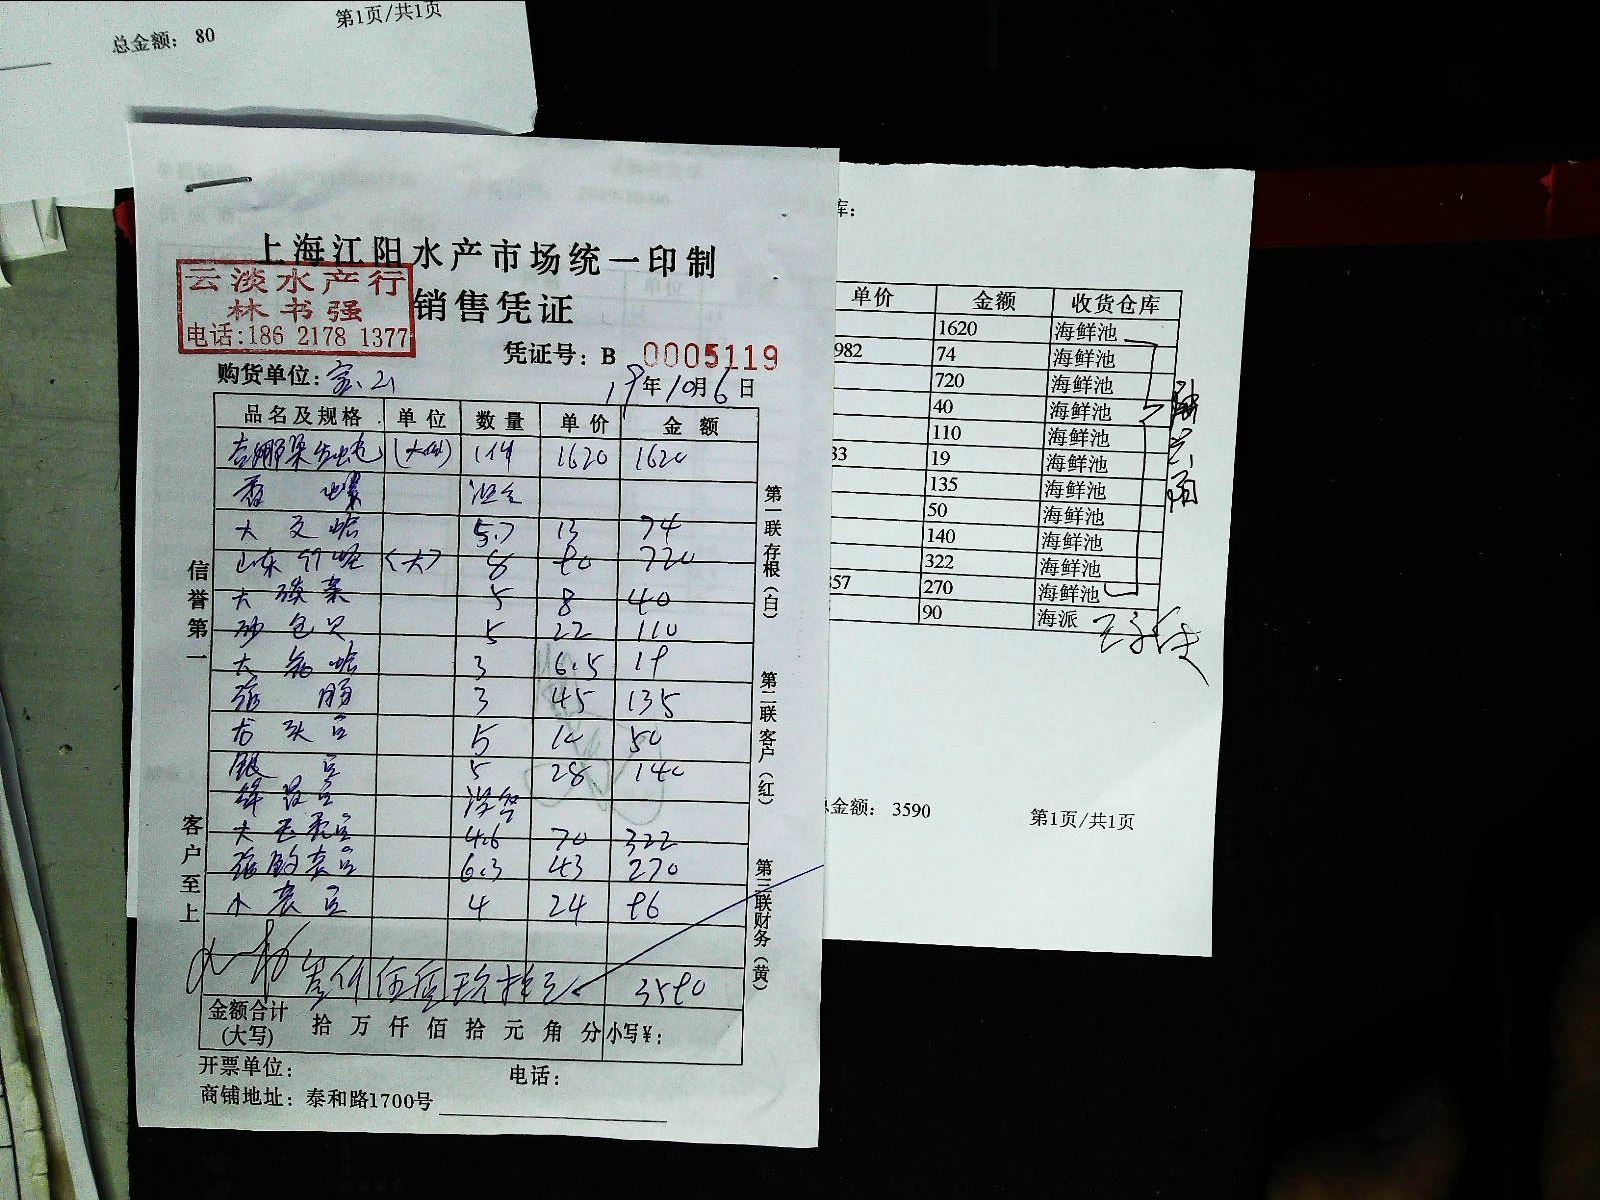 第1页/共1页
总金额： 80
上海江阳水产市场统一印制
云淡水产行
林书强
电话:186 2178 1377
销售凭证
凭证号：B 0005119
购货单位：宝山
19年10月6日
品名及规格 单位 数量 单价 金额
(大) 1件 1620 1620
香螺
大文蛤 5.7 13 74
山东 〈大〉 8 90 720
大 5 8 40
砂包贝 5 22 110
大 蛤 3 6.5 19
3 45 135
龙头 5 10 50
银 5 28 140
没
大 4.6 70 322
6.3 43 270
小 4 24 96
叁仟伍佰玖拾元 3590
金额合计
(大写) 拾 万 仟 佰 拾 元 角 分 小写¥：
开票单位： 电话：
商铺地址：泰和路1700号
信誉第一
客户至上
第一联存根(白)
第二联客户(红)
第三联财务(黄)
库：
单价 金额 收货仓库
1620 海鲜池
982 74 海鲜池
720 海鲜池
40 海鲜池
110 海鲜池
33 19 海鲜池
135 海鲜池
50 海鲜池
140 海鲜池
322 海鲜池
357 270 海鲜池
90 海派
总金额： 3590
第1页/共1页